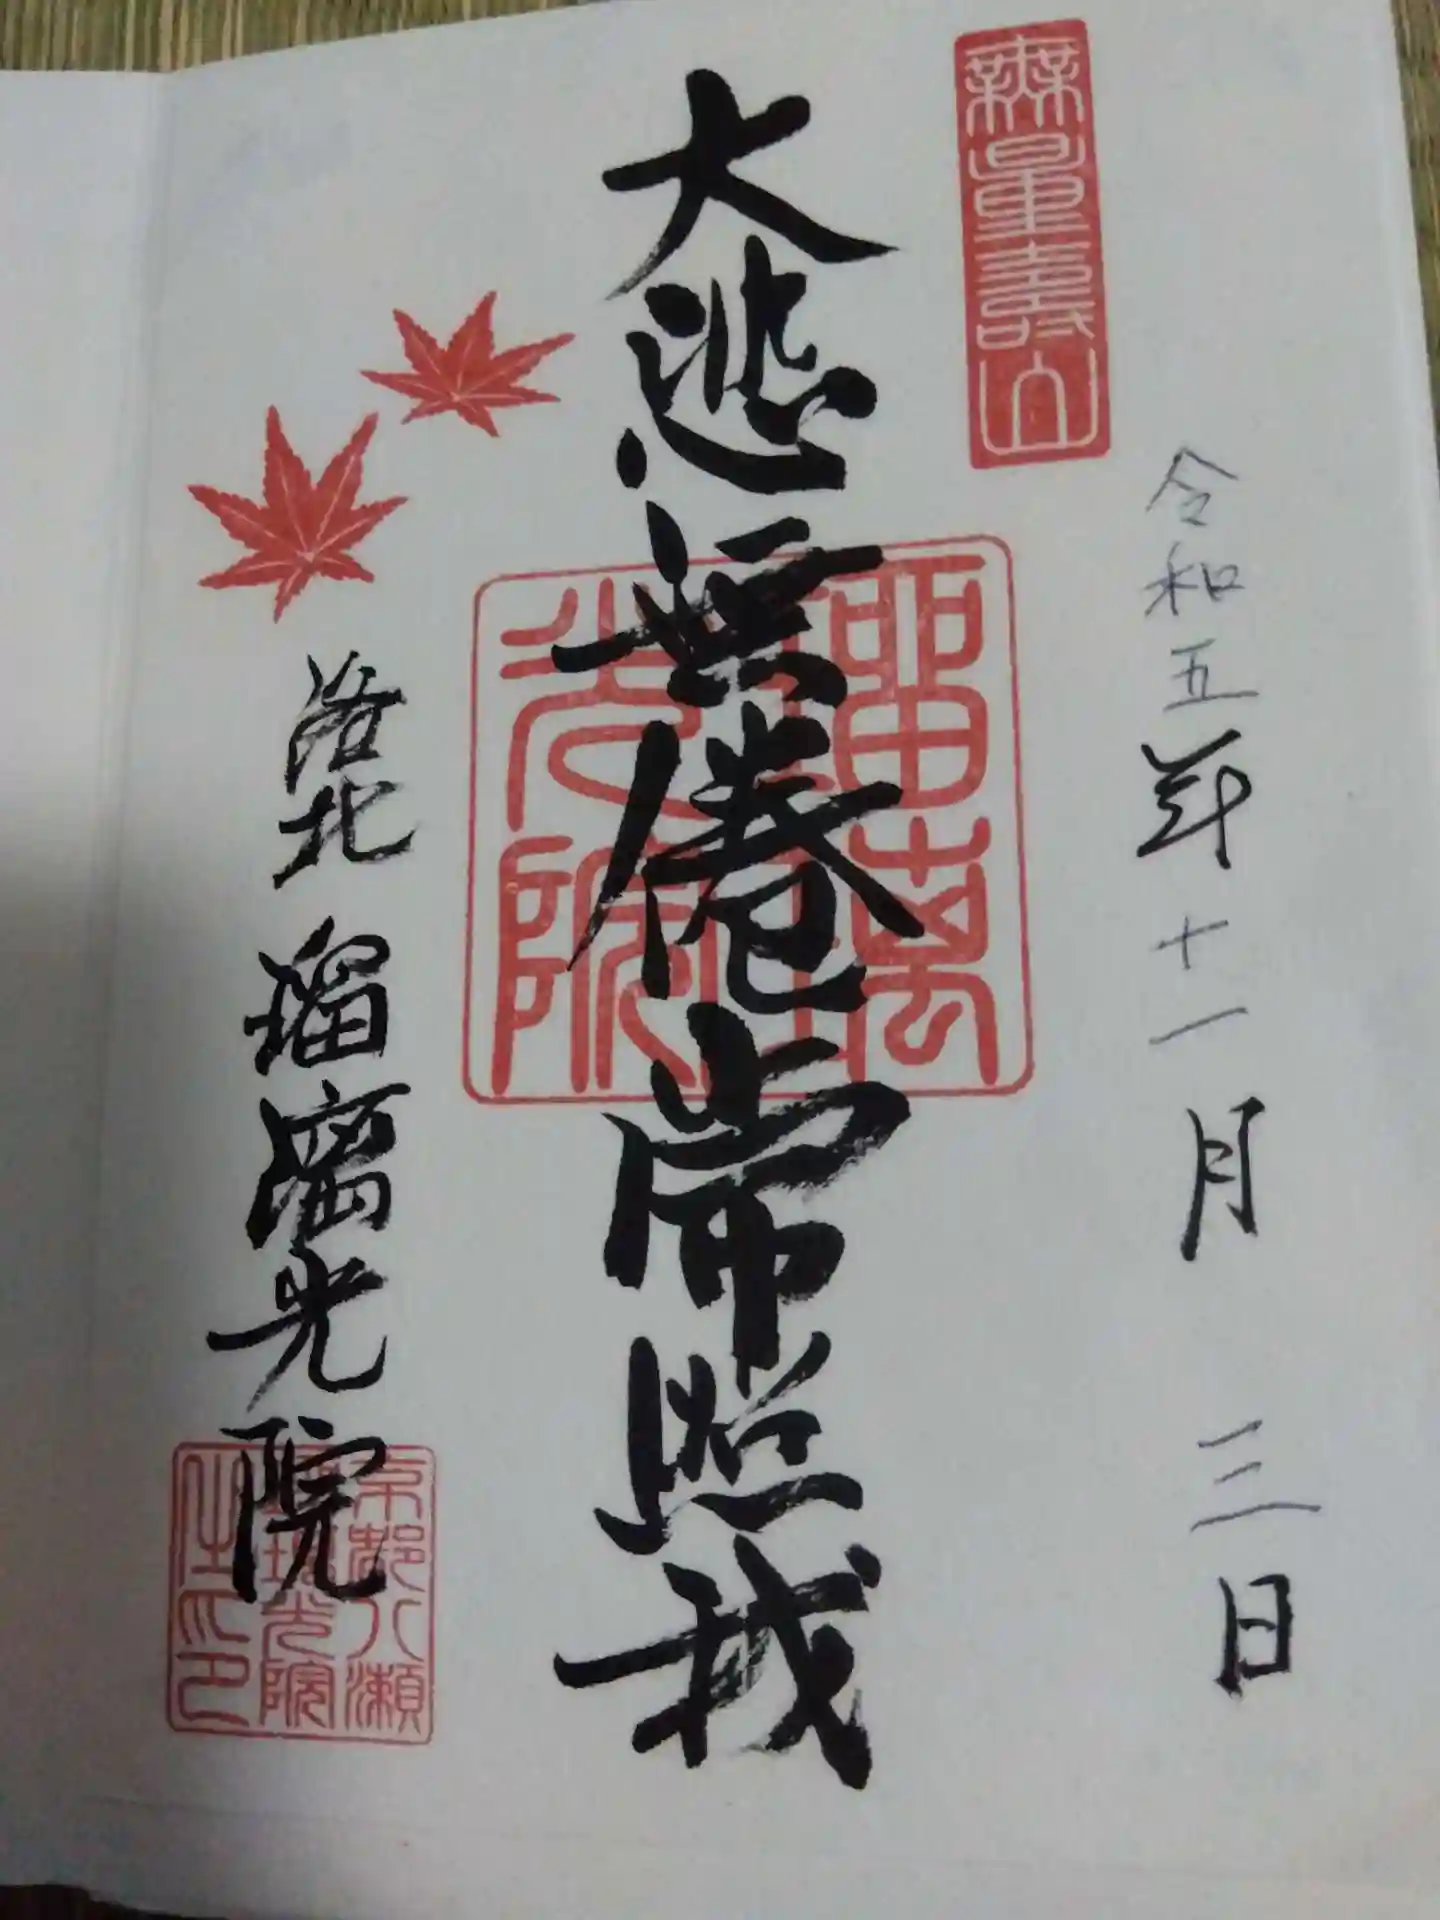 無量壽山
令和五年十一月三日
大悲無倦常照我
瑠璃光院
洛北 瑠璃光院
京都八瀬
瑠璃光院
住氏印